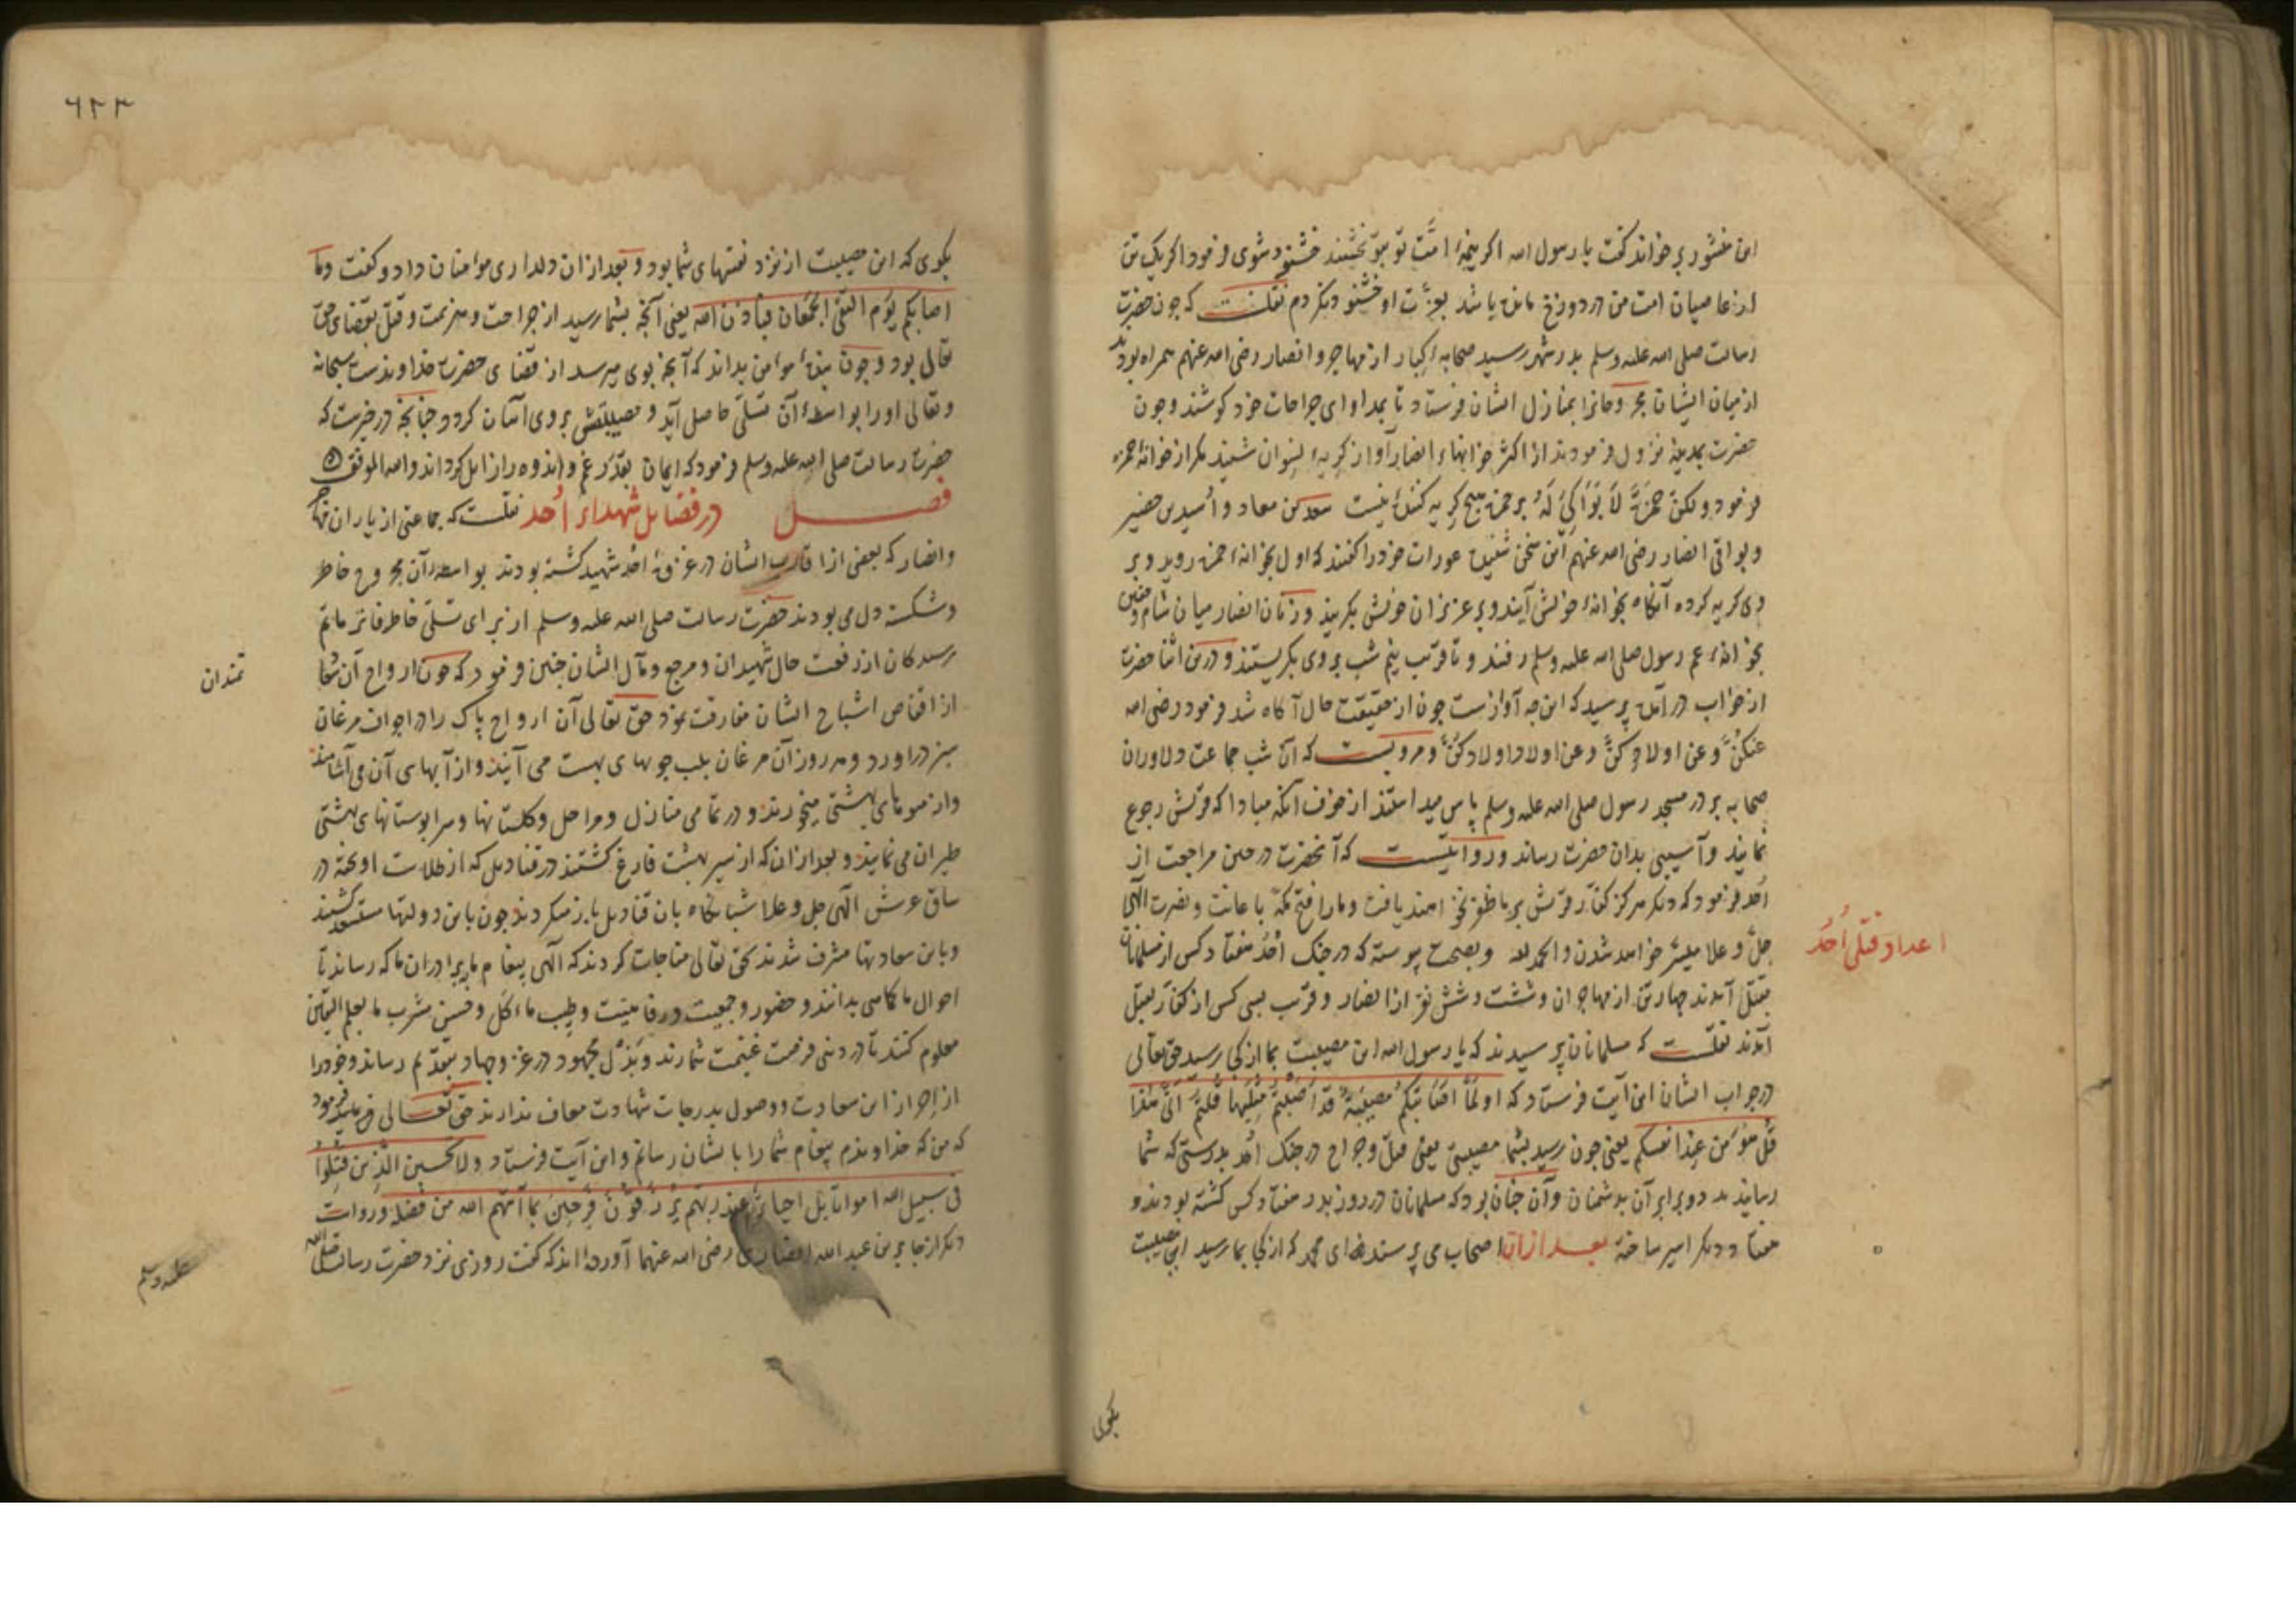 این منشور بر خواند گفت یا رسول الله اگر همهٔ امّت تو بتو بخشند خشنود شوی فرمود اگر یک تن
از عاصیان امت من در دوزخ مانده باشد بعزّت او خشنود نکردم نقلست که چون حضرت
رسالت صلی الله علیه وسلم بدر شهر رسید صحابهٔ کبار از مهاجر و انصار رضی الله عنهم همراه بودند
از میان ایشان مجروحانرا بمنازل ایشان فرستاد تا بمداوای جراحات خود کوشند و چون
حضرت بمدینه نزول فرمودند از اکثر خانهاء انصار آواز کریهٔ نسوان شنید مکر از خانهٔ حمزه
فرمود ولکنّ حمزة لا بواکی له بر حمزه هیچ کریه کننده نیست سعد بن معاد و اسید بن حضیر
و بواقی انصار رضی الله عنهم این سخن شنیده عورات خود را کفتند که اول بخانهٔ حمزه روید و بر
وی کریه کرده آنکاه بخانهٔ خویش آیند و بر عزیزان خویش بکریند و زنان انصار میان شام و خفتن
بخانهٔ عم رسول صلی الله علیه وسلم رفتند و تا قریب نیم شب بر وی بکریستند و درین اثنا حضرت
از خواب در آمده پرسید که این چه آوازست چون از حقیقت حال آکاه شد فرمود رضی الله
عنکنّ و عن اولادکنّ و عن اولاد اولادکنّ و مرویست که آن شب جماعت دلاوران
صحابه بر در مسجد رسول صلی الله علیه وسلم پاس میداشتند از خوف آنکه مبادا که قریش رجوع
نمایند و آسیبی بدان حضرت رساند و روایتست که آنحضرت در حین مراجعت از
اُحد فرمود که دیکر هرکز کفّار قریش بر ما ظفر نخواهند یافت و ما را فتح مکّه باعانت و نصرت الهی
جلّ و علا میسّر خواهد شدن والحمد لله و بصحت پیوسته که در جنک اُحد هفتاد کس از مسلمانان
بقتل آمدند چهار تن از مهاجران و شصت و شش نفر از انصار و قریب بسی کس از کفّار بقتل
آمدند نقلست که مسلمانان پرسیدند که یا رسول الله این مصیبت بما از کجا رسید حق تعالی
در جواب ایشان این آیت فرستاد که اولمّا اصابتکم مصیبة قد اصبتم مثلیها قلتم انّی هذا
قل هو من عند انفسکم یعنی چون رسید بشما مصیبتی یعنی قتل و جراح در جنک اُحد بدرستی که شما
رسانیده‌ید دو برابر آن بدشمنان و آن چنان بود که مسلمانان در روز بدر هفتاد کس کشته بودند و
هفتاد دیکر اسیر ساخته بعد از ان اصحاب می پرسند که ای محمد که از کجا بما رسید این مصیبت
اعداد قتلی اُحُد
بکوی
٦٢٣
بکوی که این مصیبت از نزد نفسهای شما بود و بعد از ان دلداری مؤمنان داد و کفت وما
اصابکم یوم التقی الجمعان فباذن الله یعنی آنچه بشما رسید از جراحت و هزیمت و قتل بقضای حق
تعالی بود و چون بندهٔ مؤمن بداند که آنچه بوی میرسد از قضای حضرت خداوندست سبحانه
وتعالی او را بواسطهٔ آن تسلّی حاصل آید و مصیبتش بر وی آسان کردد چنانچه در خبرست که
حضرت رسالت صلی الله علیه وسلم فرمود که ایمان بقدر غم و اندوه را زایل کرداند والله الموفق
فصل در فضایل شهداء اُحد نقلست که جماعتی از یاران مهاجر
و انصار که بعضی از اقارب ایشان در غزوهٔ اُحد شهید کشته بودند بواسطهٔ آن مجروح خاطر
و شکسته دل می بودند حضرت رسالت صلی الله علیه وسلم از برای تسلّی خاطر فاتر ماتم
رسیدکان از رفعت حال شهیدان و مرجع و مآل ایشان چنین فرمود که چون ارواح آن سعا
تمندان
از اقفاص اشباح ایشان مفارقت نمود حق تعالی آن ارواح پاک را در اجواف مرغان
سبز در آورد و هر روز آن مرغان بلب جویهای بهشت می آیند و از آبهای آن می آشامند
و از میوهای بهشتی میخورند و در تمامی منازل و مراحل و کلستانها و سرابوستانهای بهشتی
طیران می نمایند و بعد از ان که از سیر بهشت فارغ کشتند در قنادیل که از طلاست آویخته در
ساق عرش الهی جل و علا شبانکاه بان قنادیل باز میکردند چون باین دولتها مستسعد کشتند
و باین سعادتها مشرف شدند بحق تعالی مناجات کردند که الهی پیغام ما ببرادران ما که رساند تا
احوال ما کماهی بدانند و حضور و جمعیت و رفاهیت و طیب مأکل و حسن مشرب ما بعلم الیقین
معلوم کنند تا در دنیی فرصت غنیمت شمارند و بذل مجهود در غزو جهاد بتقدیم رساند و خود را
از احراز این سعادت و وصول بدرجات شهادت معاف ندارند حق تعالی فرمود
که من که خداوندم پیغام شما را بایشان رسانم و این آیت فرستاد ولا تحسبن الذین قتلوا
فی سبیل الله امواتا بل احیاء عند ربهم یرزقون فرحین بما آتیهم الله من فضله و روایت
دیکر از جابر بن عبد الله انصاری رضی الله عنهما آورده‌اند که کفت روزی نزد حضرت رسالت صلی الله
علیه وسلم